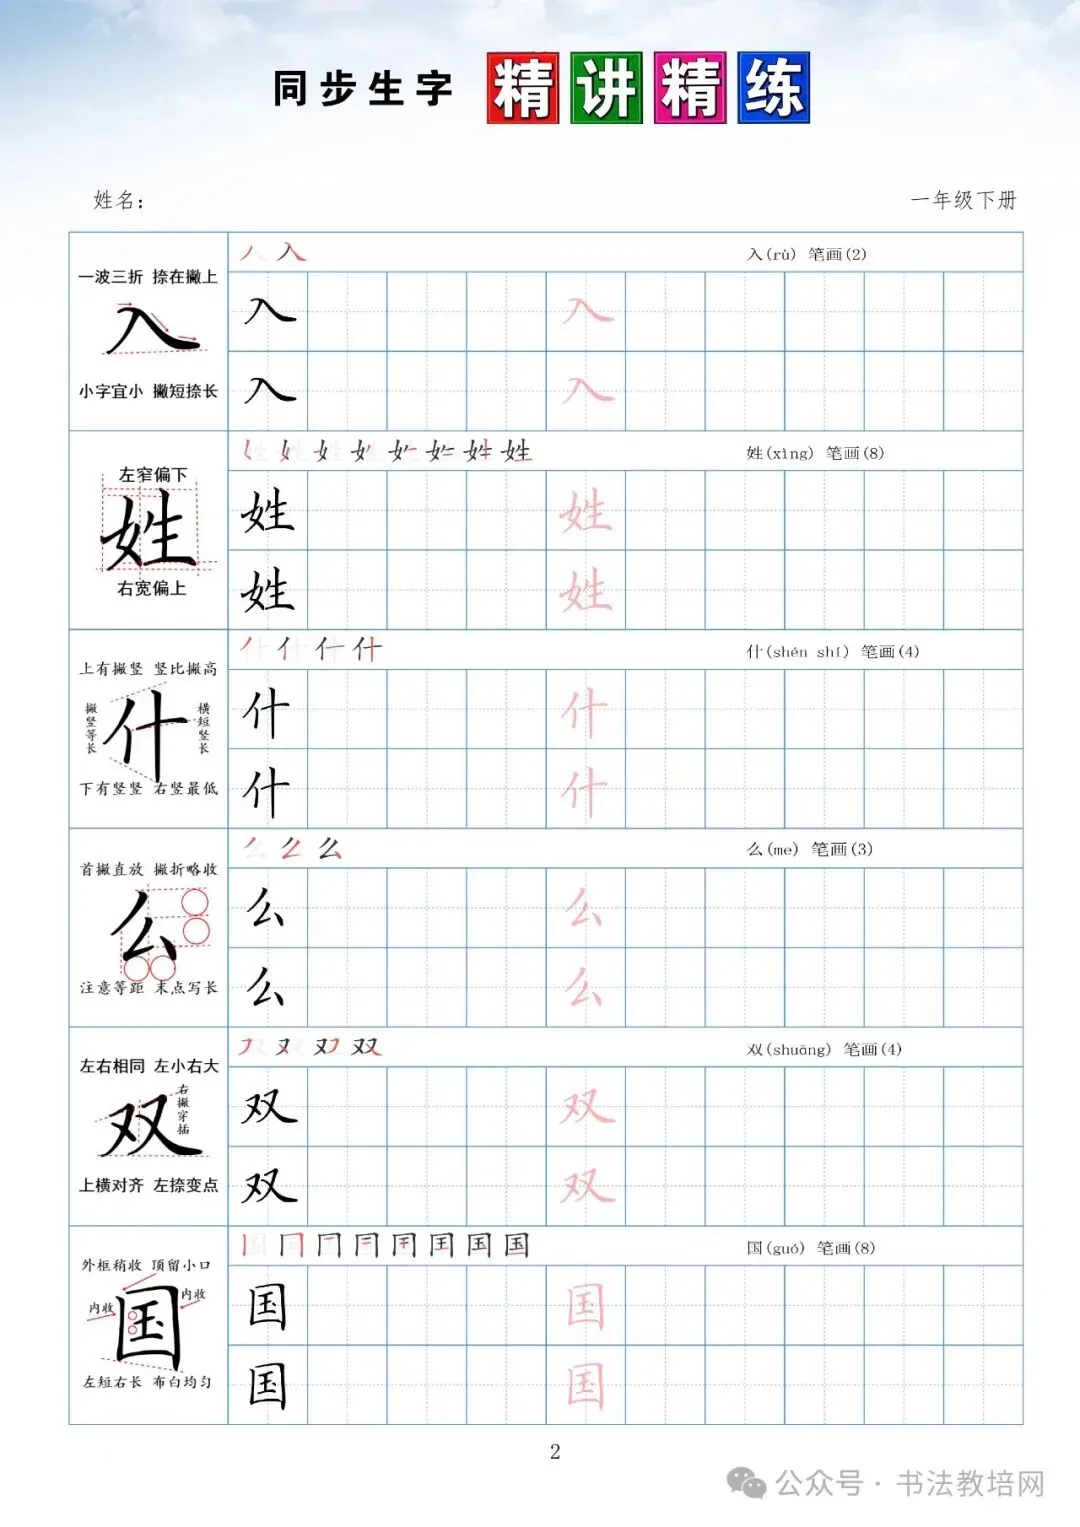 同步生字 精讲精练
姓名：
一年级下册
一波三折 捺在撇上
入
小字宜小 撇短捺长
入 入(rù) 笔画(2)
入 入
入 入
左窄偏下
姓
右宽偏上
姓 姓(xìng) 笔画(8)
姓 姓
姓 姓
上有撇竖 竖比撇高
撇竖等长
什
横短竖长
下有竖竖 右竖最低
什 什(shén shí) 笔画(4)
什 什
什 什
首撇直放 撇折略收
么
注意等距 末点写长
么 么(me) 笔画(3)
么 么
么 么
左右相同 左小右大
双
右撇穿插
上横对齐 左捺变点
双 双(shuāng) 笔画(4)
双 双
双 双
外框稍收 顶留小口
内收
国
内收
左短右长 布白均匀
国 国(guó) 笔画(8)
国 国
国 国
2
公众号·书法教培网